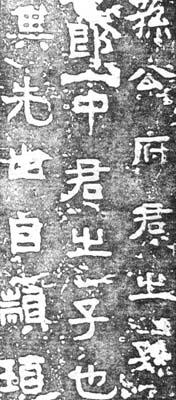 孫公府君之孫
郎中君之子也
其先出自顓頊